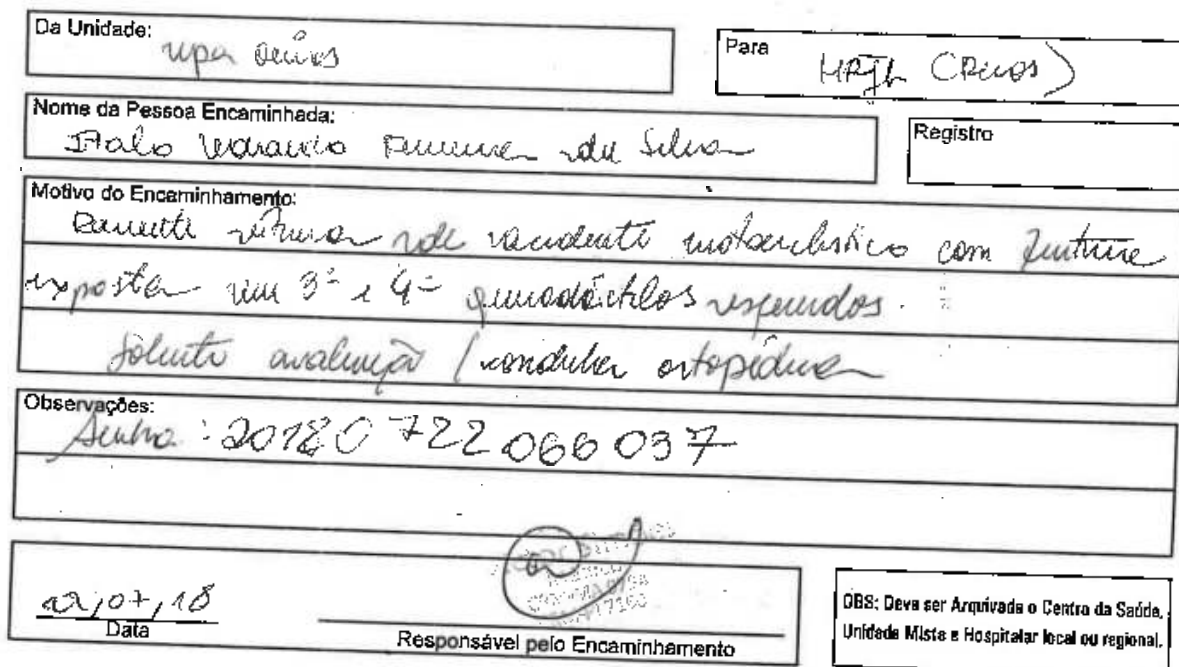 Da Unidade:
upa
Para
Nome da Pessoa Encaminhada:
Italo da Silva
Registro
Motivo do Encaminhamento:
Paciente vítima de acidente motociclístico com fratura
exposta em 3º e 4º quirodáctilos esquerdos.
Solicito avaliação / conduta ortopédica
Observações:
Senha: 20180722066037
22/07/18
Data
Responsável pelo Encaminhamento
OBS: Deve ser Arquivada o Centro da Saúde,
Unidade Mista e Hospitalar local ou regional.